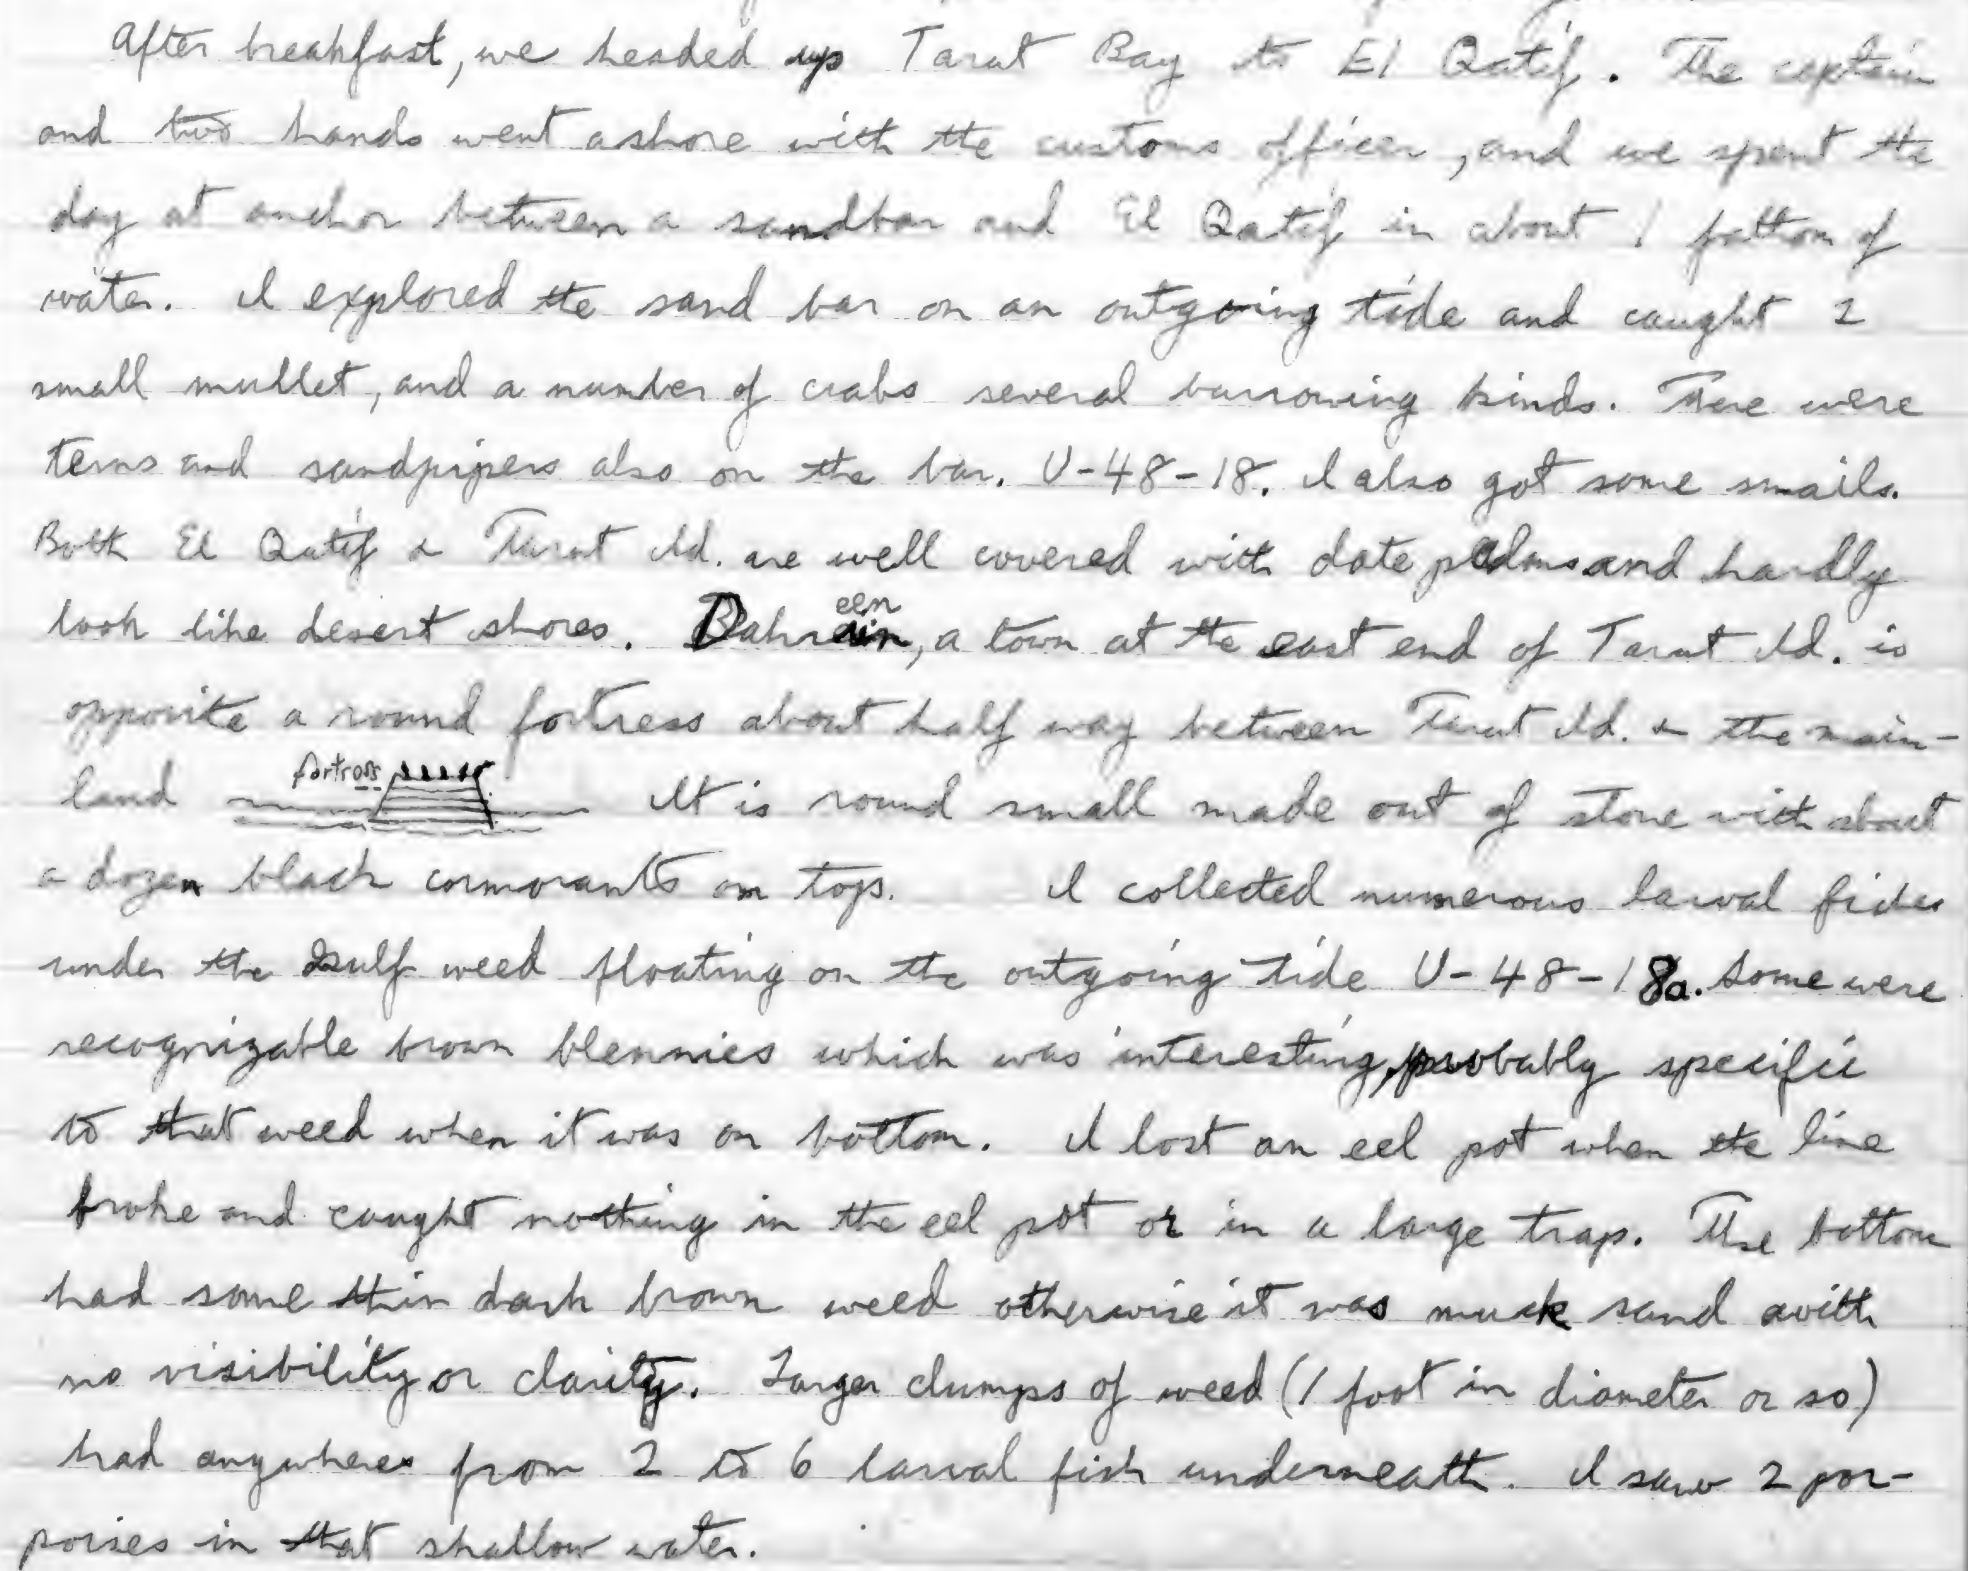 After breakfast, we headed up Tarut Bay to El Qatif. The captain
and two hands went ashore with the customs officer, and we spent the
day at anchor between a sandbar and El Qatif in about 1 fathom of
water. I explored the sand bar on an outgoing tide and caught 2
small mullet, and a number of crabs several burrowing kinds. There were
terns and sandpipers also on the bar. U-48-18. I also got some snails.
Both El Qatif & Tarut Id. are well covered with date palms and hardly
look like desert shores. een
a town at the east end of Tarut Id. is
opposite a round fortress about half way between Tarut Id. & the main-
land fortress It is round small made out of stone with about
a dozen black cormorants on top. I collected numerous larval fishes
under the Gulf weed floating on the outgoing tide U-48-18a. Some were
recognizable brown blennies which was interesting, probably specific
to that weed when it was on bottom. I lost an eel pot when the line
broke and caught nothing in the eel pot or in a large trap. The bottom
had some thin dark brown weed otherwise it was muck sand with
no visibility or clarity. Larger clumps of weed (1 foot in diameter or so)
had anywheres from 2 to 6 larval fish underneath. I saw 2 por-
poises in that shallow water.